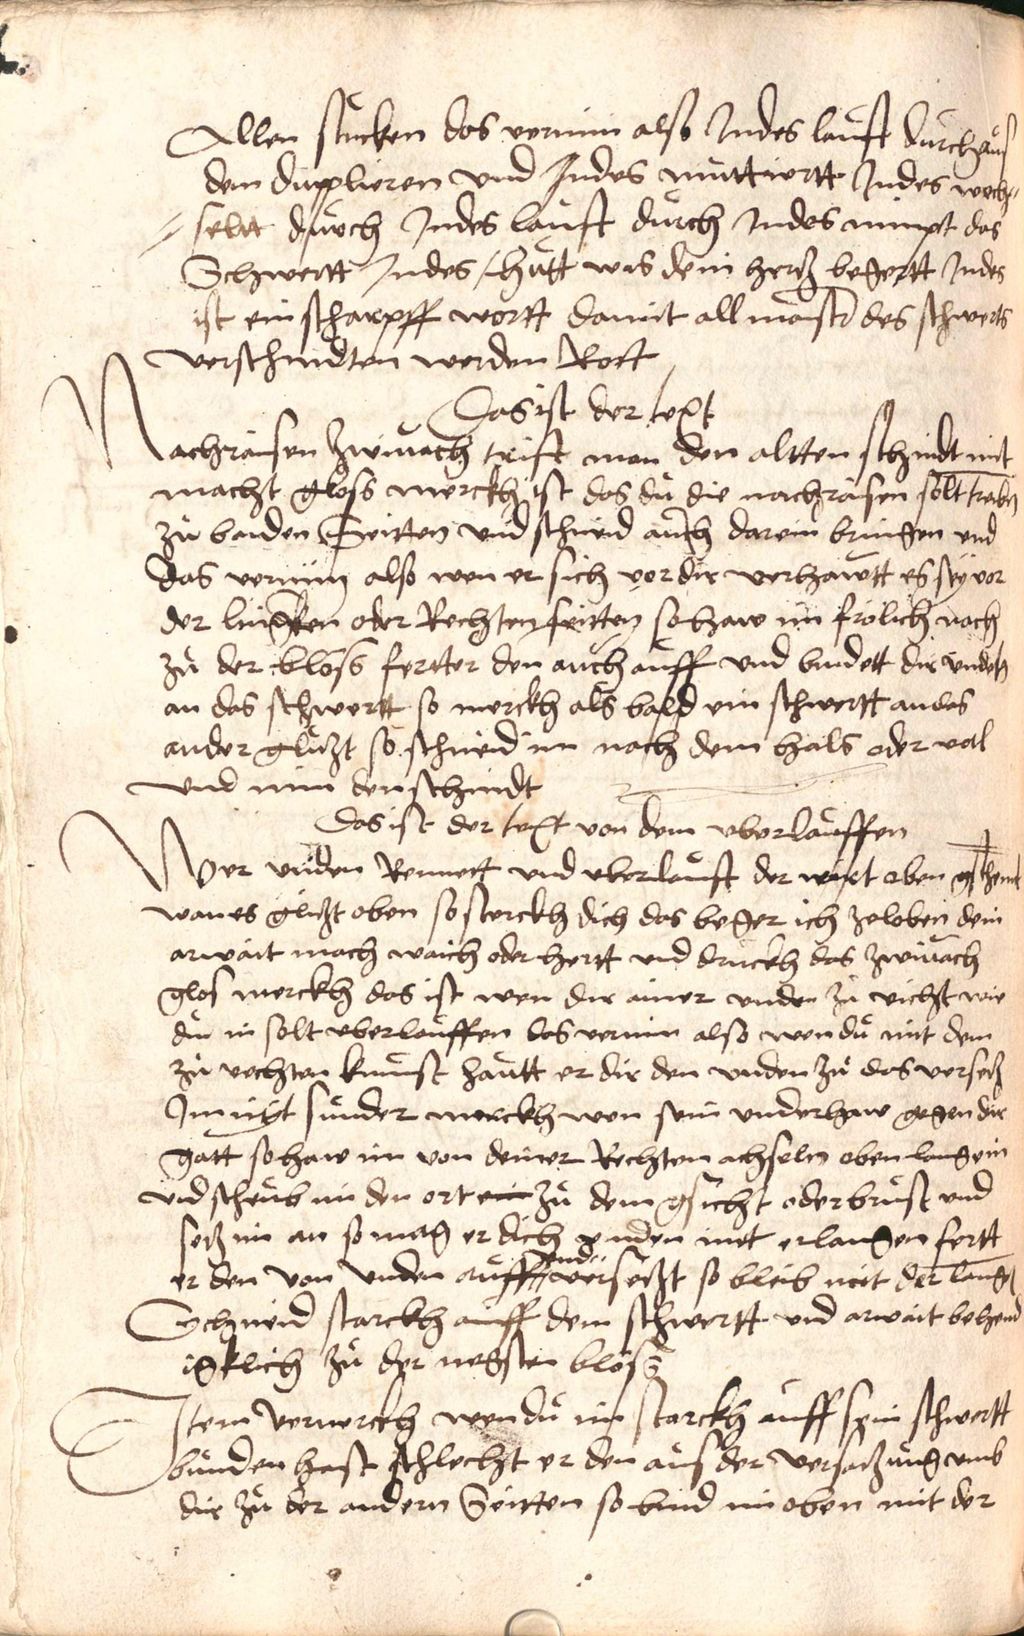 Allen stucken das vernim also Indes lauft durchaus
dem dupplieren und Indes muttiertt Indes wech=
=seltt durch Indes lauft durch Indes nimpt das
Schwertt Indes / thutt was dein hertz begertt Indes
ist ein scharpff wortt damit all maister des schwerts
verschnidten werden Rott
Das ist der text
Nachraisen zwimach trifst man den altten schnidt mit
macht gloss merckh ist das du die nachraisen solt treiben
zu baiden Seitten und schnid auch darein bringen und
das vernim also wen er sich vor dir verhawtt es sey vor
der lincken oder Rechten seitten so haw im frolich nach
zu der blöss fertter den auch auff und bindett dir unden
an das schwertt so merckh als bald ein schwertt an das
ander glitzt so schneid im nach dem hals oder val
und nim den schnidt
Das ist der text von dem uberlauffen
Wer unden Remett und uberlauft der wirt oben gschemt
wan es glitzt oben so sterckh dich das beger ich zeloben dein
arwait mach waich oder hertt und druckh das zwimach
glos merckh das ist wen dir ainer unden zu vicht wie
du in solt uberlauffen das vernim also wen du mit dem
zu vechten kumst hautt er dir den unden zu das versetz
Im nit sunder merckh wen sein underhaw gegen dir
gatt so haw im von deiner Rechten achseln oben lang ein
und scheub im den ort zu dem gsicht oder brust und
setz im an so mag er dich unden nitt erlangen fertt
er den von unden auff und versetzt so bleib mit der langen
Schneid starckh auff dem schwertt und arwait behend
igklich zu der negsten blöss
Item vermerckh wen du im starckh auff sein schwertt
bunden hast schlecht er den aus der versatzung umb
dir zu der andern Seitten so bind im oben mit der